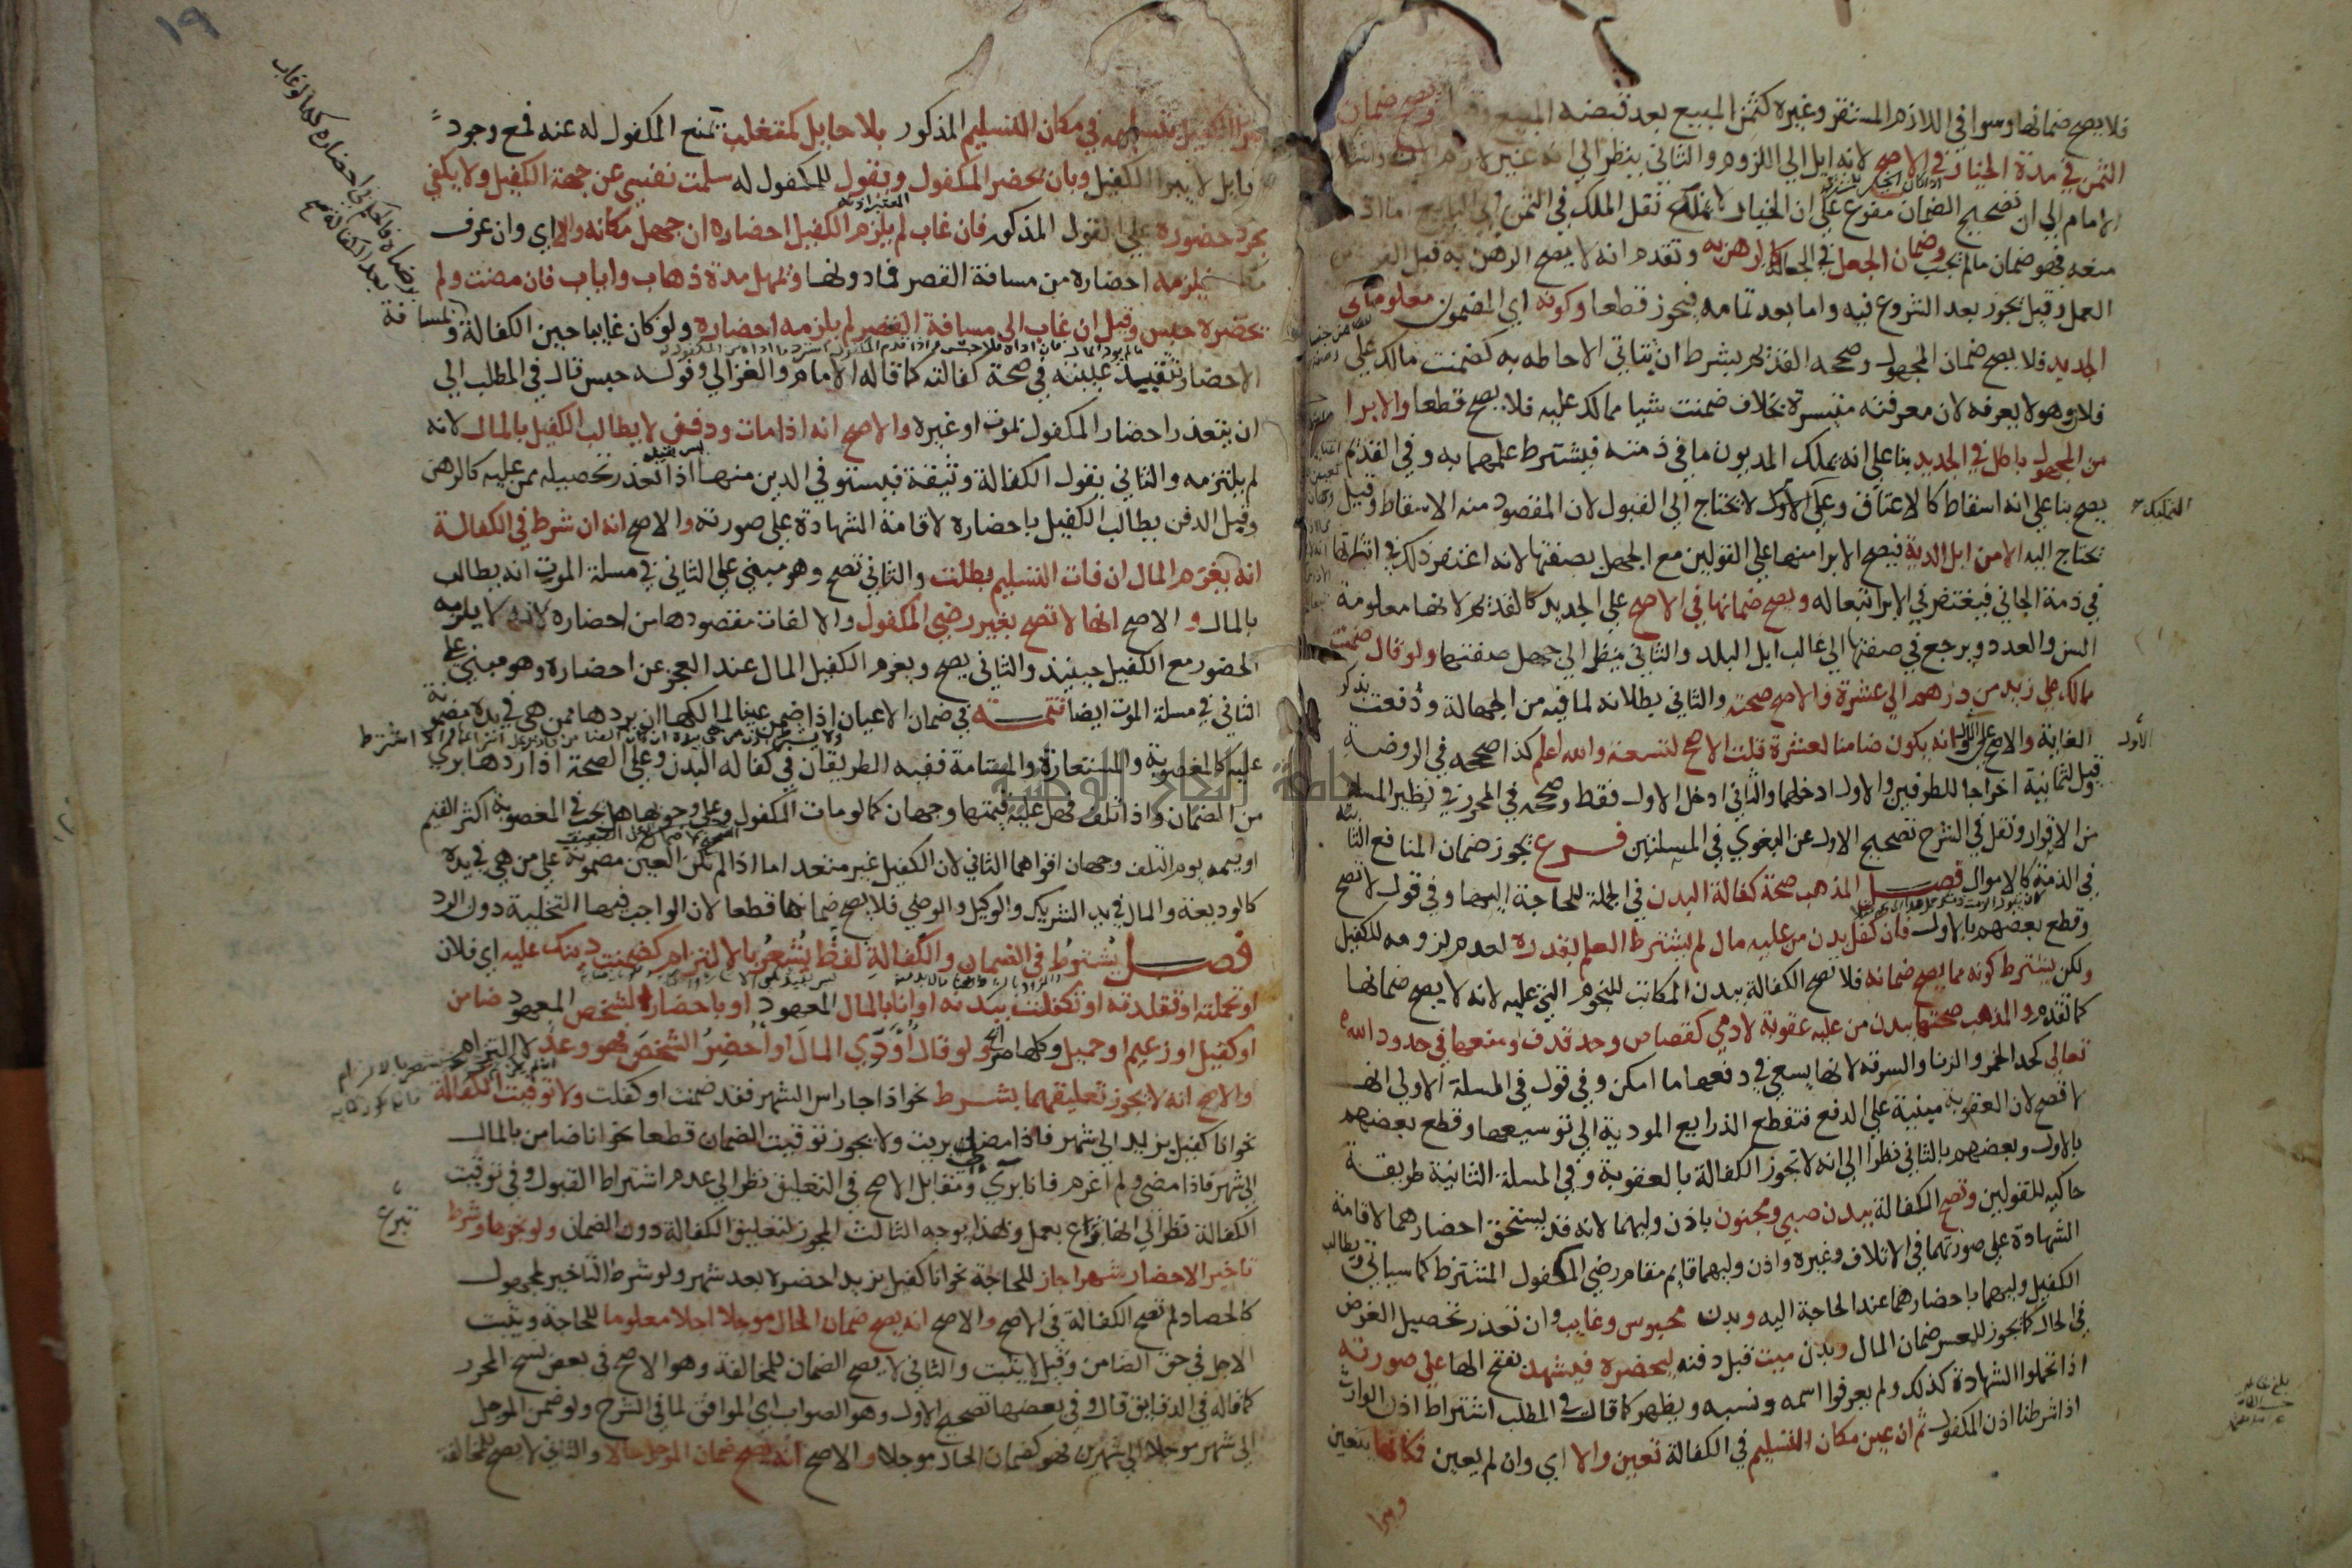 فلا يصح ضمانها وسوا في اللازم المستقر وغيره كثمن المبيع بعد قبضه المبيع ويصح ضمان
الثمن في مدة الخيار في الاصح لانه ايل الي اللزوم والثاني ينظر الي انه غير لازم الان واشار
الامام الي ان تصحيح الضمان مفرع علي ان الخيار لا يمنع نقل الملك في الثمن الي البايع اما اذا
منعه فهو ضمان ما لم يجب وضمان الجعل في الجعالة كالرهن به وتقدم انه لا يصح الرهن به قبل الفراغ من
العمل وقيل يجوز بعد الشروع فيه واما بعد تمامه فيجوز قطعا وكونه اي المضمون معلوما في
الجديد فلا يصح ضمان المجهول وصححه القديم بشرط ان تتاتي الاحاطه به كضمنت مالك علي
فلان وهو لا يعرفه لان معرفته متيسرة بخلاف ضمنت شيا مما لك عليه فلا يصح قطعا والابرا
من المجهول باطل في الجديد بنا علي انه يملك المديون ما في ذمته فيشترط علمهما به وفي القديم
يصح بنا علي انه اسقاط كالاعتاق وعلي الاول لا يحتاج الي القبول لان المقصود منه الاسقاط وقيل
يحتاج اليه الا من ابل الدية فيصح الابرا منها علي القولين مع الجهل بصفتها لانه اغتفر ذلك في اثباتها
في ذمة الجاني فيغتفر في الابرا تبعا له ويصح ضمانها في الاصح علي الجديد كالقديم لانها معلومة
السن والعدد ويرجع في صفتها الي غالب ابل البلد والثاني ينظر الي جهل صفتها ولو قال ضمنت
مالك علي زيد من درهم الي عشرة فالاصح صحته والثاني بطلانه لما فيه من الجهالة ودفعت بذكر
الغاية والاصح علي الاول انه يكون ضامنا لعشرة قلت الاصح لتسعة والله اعلم كذا صححه في الروضة
وقيل لثمانية اخراجا للطرفين والاول ادخلهما والثاني ادخل الاول فقط وصححه في المحرر في نظير المسلة
من الاقرار ونقل في الشرح تصحيح الاول عن البغوي في المسلتين فرع يجوز ضمان المنافع الثابته
في الذمة كالاموال فصل المذهب صحة كفالة البدن في الجملة للحاجة اليها وفي قول لا تصح
وقطع بعضهم بالاول فان كفل بدن من عليه مال لم يشترط العلم بقدره لعدم لزومه للكفيل
ولكن يشترط كونه مما يصح ضمانه فلا تصح الكفالة ببدن المكاتب للنجوم التي عليه لانه لا يصح ضمانها
كما تقدم والمذهب صحتها ببدن من عليه عقوبة لادمي كقصاص وحد قذف ومنعها في حدود الله
تعالي كحد الخمر والزنا والسرقه لانها يسعي في دفعها ما امكن وفي قول في المسلة الاولي انها
لا تصح لان العقوبة مبنية علي الدفع فتقطع الذرايع المودية الي توسيعها وقطع بعضهم
بالاول وبعضهم بالثاني نظرا الي انه لا تجوز الكفالة بالعقوبة وفي المسلة الثانية طريقة
حاكيه للقولين وتصح الكفالة ببدن صبي ومجنون باذن وليهما لانه قد يستحق احضارهما لاقامة
الشهادة علي صورتهما في الاتلاف وغيره واذن وليهما قايم مقام رضي المكفول المشترط كما سياتي ويطالب
الكفيل وليهما باحضارهما عند الحاجة اليه وبدن محبوس وغايب وان تعذر تحصيل الغرض
في الحال كما يجوز للمعسر ضمان المال وبدن ميت قبل دفنه ليحضره فيشهد بفتح الها علي صورته
اذا تحملوا الشهادة كذلك ولم يعرفوا اسمه ونسبه ويظهر كما قال في المطلب اشتراط اذن الوارث
اذا شرطنا اذن المكفول ثم ان عين مكان التسليم في الكفالة تعين والا اي وان لم يعين فمكانها يتعين
ويبرا
التمليك
الاول
١٩
يبرا الكفيل بتسليمه في مكان التسليم المذكور بلا حايل كمتغلب يمنع المكفول له عنه فمع وجود
الحايل لا يبرا الكفيل وبان يحضر المكفول ويقول للمكفول له سلمت نفسي عن جهة الكفيل ولا يكفي
مجرد حضوره علي القول المذكور فان غاب لم يلزم الكفيل احضاره ان جهل مكانه والا اي وان عرف
مكانه فيلزمه احضاره من مسافة القصر فما دونها ويمهل مدة ذهاب واياب فان مضت ولم
يحضره حبس وقيل ان غاب الي مسافة القصر لم يلزمه احضاره ولو كان غايبا حين الكفالة ولمسافة
الاحضار تقييد غيبته في صحة كفالته كما قاله الامام والغزالي وقوله حبس قال في المطلب الي
ان يتعذر احضار المكفول بموت او غيره والاصح انه اذا مات ودفن لا يطالب الكفيل بالمال لانه
لم يلتزمه والثاني يقول الكفالة وثيقة فيستوفي الدين منها اذا تعذر تحصيله ممن عليه كالرهن
وقيل الدفن يطالب الكفيل باحضاره لاقامة الشهادة علي صورته والاصح انه ان شرط في الكفالة
انه يغرم المال ان فات التسليم بطلت والثاني تصح وهو مبني علي الثاني في مسلة الموت انه يطالب
بالمال والاصح انها لا تصح بغير رضي المكفول والا لفات مقصودها من احضاره لانه لا يلزمه
الحضور مع الكفيل حينيذ والثاني يصح ويغرم الكفيل المال عند العجز عن احضاره وهو مبني علي
الثاني في مسلة الموت ايضا تتمة في ضمان الاعيان اذا ضمن عينا لمالكها ان يردها ممن هي في يده مضمونة
عليه كالمغصوبة والمستعارة والمستامة ففيه الطريقان في كفالة البدن وعلي الصحة اذا ردها بري
من الضمان واذا تلف فهل عليه قيمتها وجهان كما لو مات المكفول وعلي وجوبها هل يجب في المغصوبة اكثر القيم
او قيمه يوم التلف وجهان اقواهما الثاني لان الكفيل غير متعد اما اذا لم تكن العين مضمونة علي من هي في يده
كالوديعة والمال في يد الشريك والوكيل والوصي فلا يصح ضمانها قطعا لان الواجب فيها التخلية دون الرد
فصل يشترط في الضمان والكفالة لفظ يشعر بالالتزام كضمنت دينك عليه اي فلان
او تحملته او تقلدته او تكفلت ببدنه او انا بالمال المعهود او باحضار الشخص المعهود ضامن
او كفيل او زعيم او حميل وكلها صرايح ولو قال اودي المال او احضر الشخص فهو وعد لا التزام
والاصح انه لا يجوز تعليقهما بشرط نحو اذا جا راس الشهر فقد ضمنت او كفلت ولا توقيت الكفالة
نحو انا كفيل بزيد الي شهر فاذا مضي بريت ولا يجوز توقيت الضمان قطعا نحو انا ضامن بالمال
الي شهر فاذا مضي ولم اغرم فانا بري ومقابل الاصح في التعليق نظر الي عدم اشتراط القبول وفي توقيت
الكفالة نظر الي انها تبرع بعمل ولهذا يوجه الثالث المجوز لتعليق الكفالة دون الضمان ولو نجزها وشرط
تاخير الاحضار شهرا جاز للحاجة نحو انا كفيل بزيد احضره بعد شهر ولو شرط التاخير لمجهول
كالحصاد لم تصح الكفالة في الاصح والاصح انه يصح ضمان الحال موجلا اجلا معلوما للحاجة ويثبت
الاجل في حق الضامن وقيل لا يثبت والثاني لا يصح الضمان للمخالفة وهو الاصح في بعض نسخ المحرر
كما قاله في الدقايق قال وفي بعضها تصحيح الاول وهو الصواب اي الموافق لما في الشرح ولو ضمن الموجل
الي شهر موجلا الي شهرين فهو كضمان الحال موجلا والاصح انه يصح ضمان الموجل حالا والثاني لا يصح للمخالفة
تبرع
جامعة الوطنية